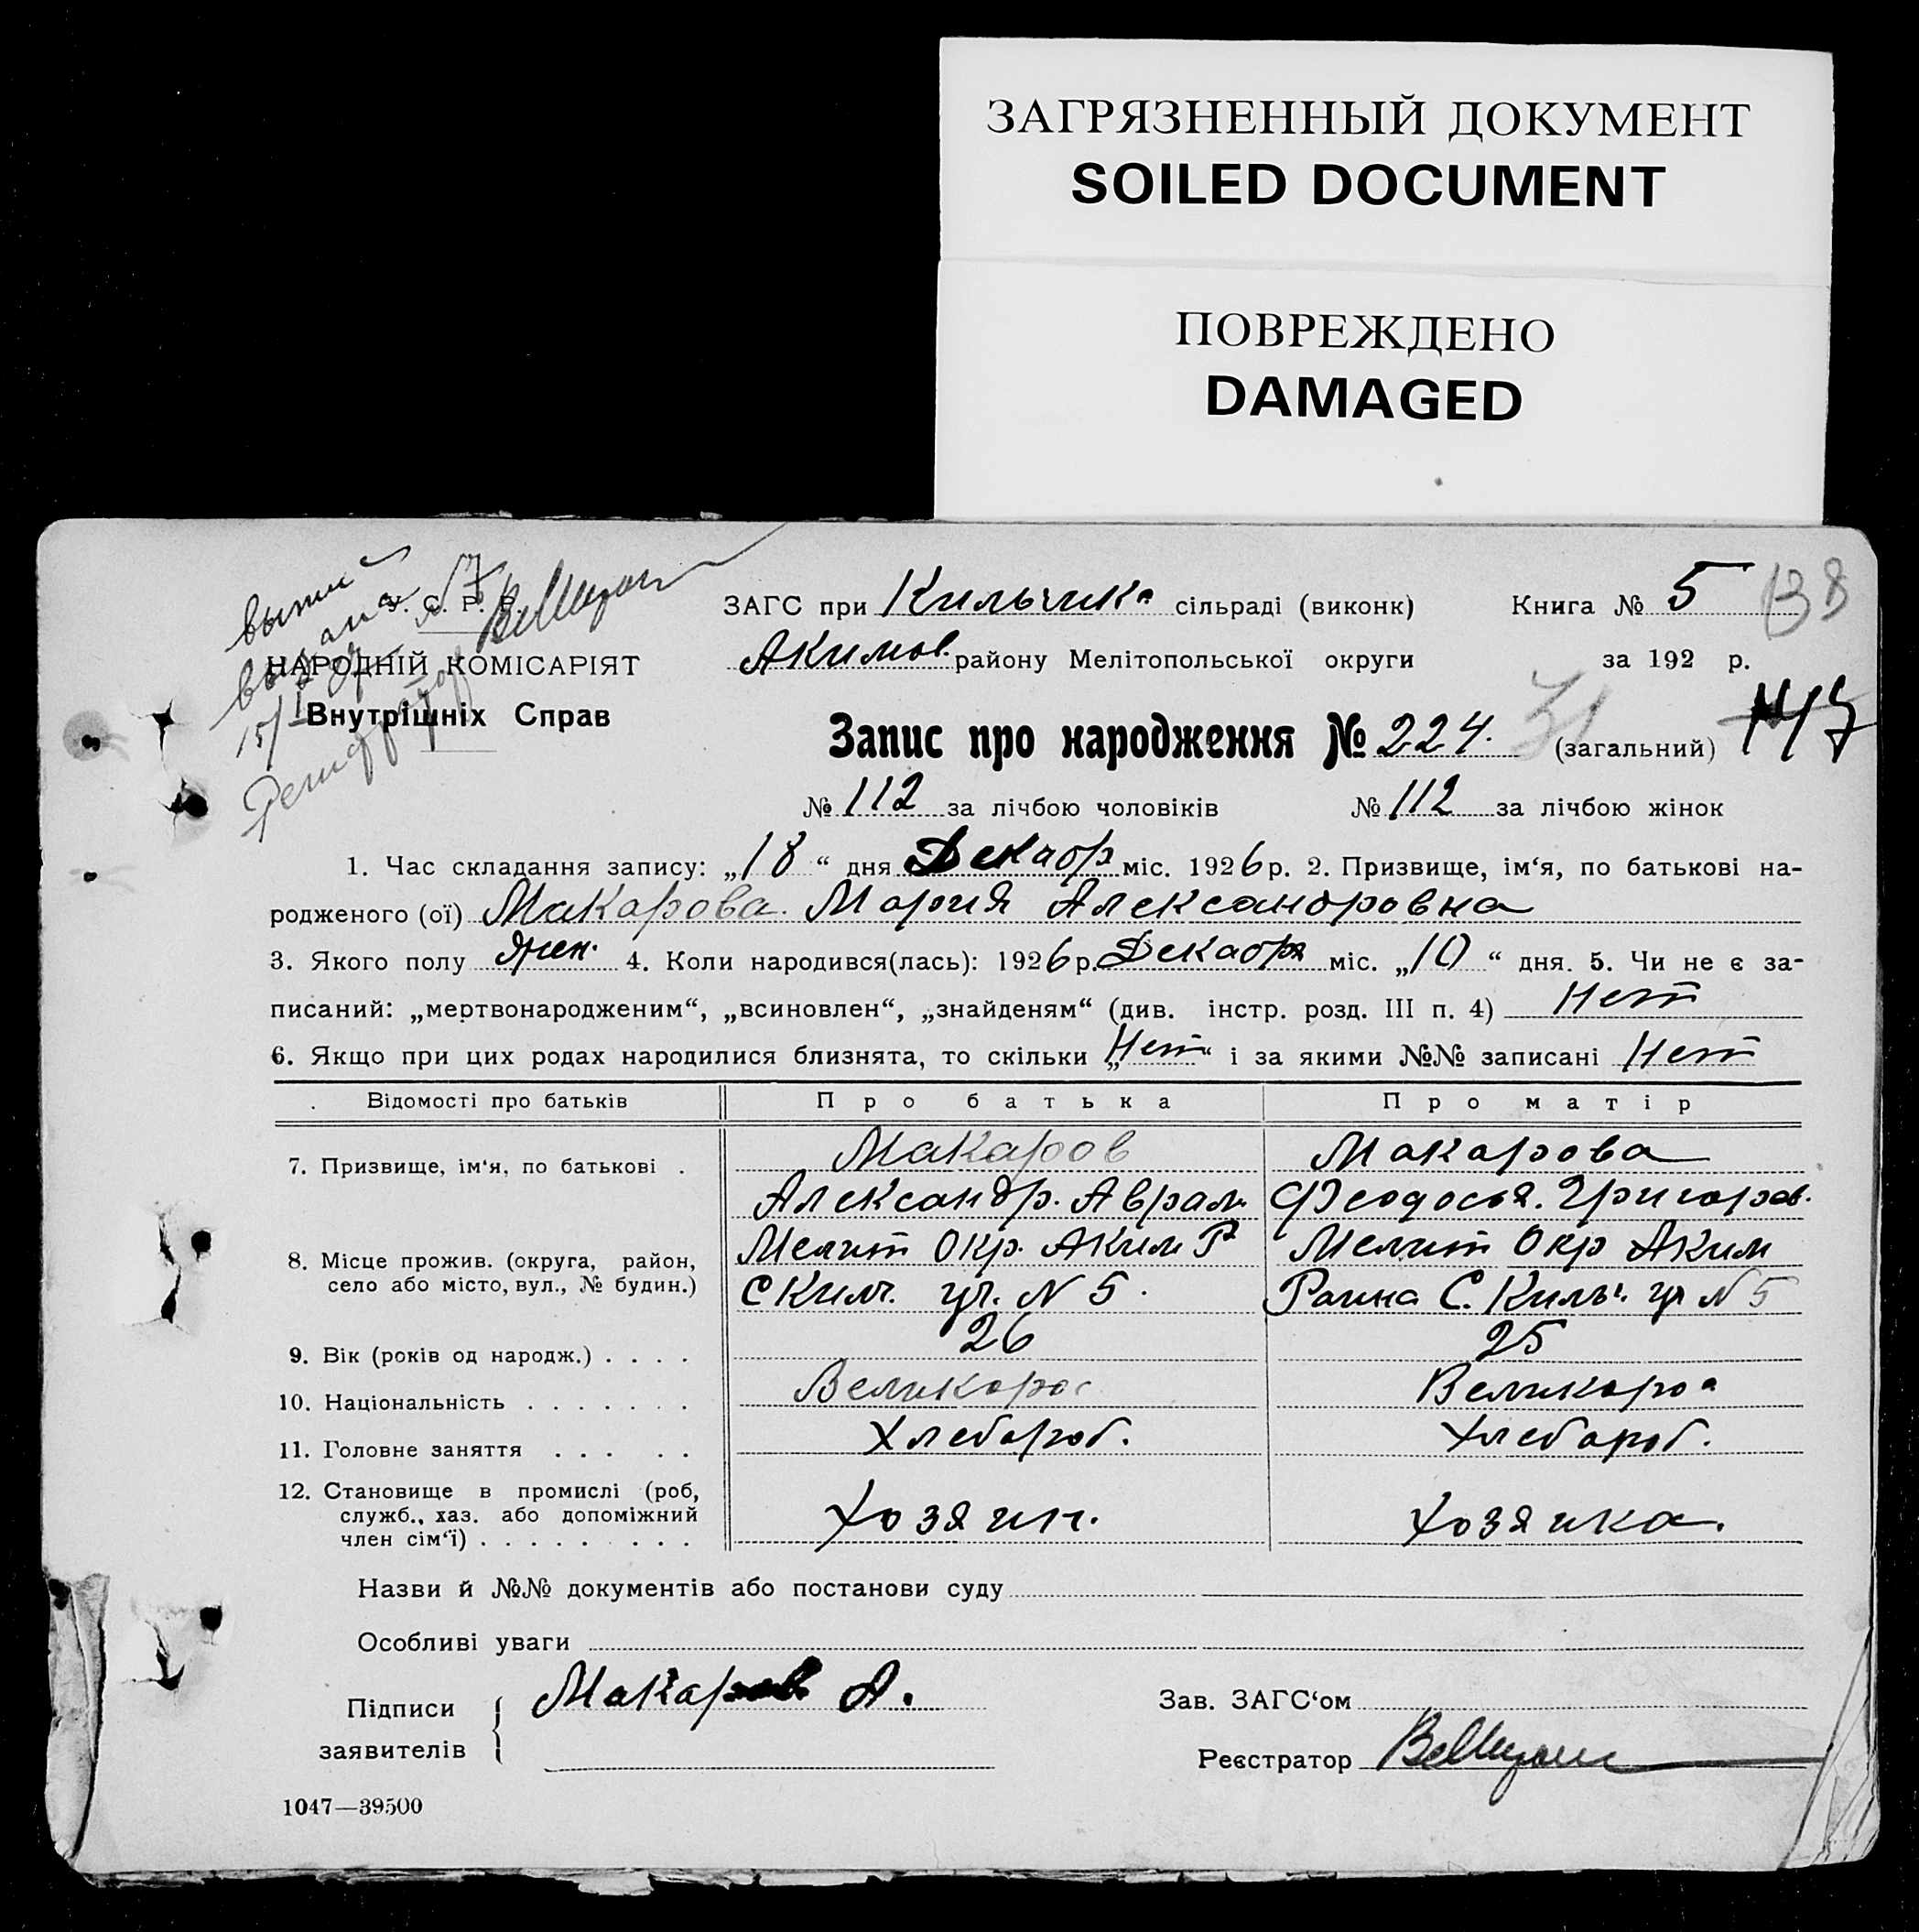 ЗАГРЯЗНЕННЫЙ ДОКУМЕНТ
SOILED DOCUMENT
ПОВРЕЖДЕНО
DAMAGED
У. С. Р. Р.
НАРОДНІЙ КОМІСАРІЯТ
Внутрішніх Справ
15/I
ЗАГС при Кильчика сільраді (виконк) Книга № 5 138
Акимов. району Мелітопольської округи за 192 р.
Запис про народження № 224. 31 (загальний)
№ 112 за лічбою чоловіків № 112 за лічбою жінок
1. Час складання запису: „18“ дня Декабр міс. 1926 р. 2. Призвище, ім‘я, по батькові на-
родженого (ої) Макарова Мария Александровна
3. Якого полу жен. 4. Коли народився(лась): 1926 р. Декабря міс. „10“ дня. 5. Чи не є за-
писаний: „мертвонародженим“, „всиновлен“, „знайденям“ (див. інстр. розд. III п. 4) Нет
6. Якщо при цих родах народилися близнята, то скільки „Нет“ і за якими №№ записані Нет
Відомості про батьків Про батька Про матір
7. Призвище, ім‘я, по батькові . Макаров Макарова
Александр. Аврам Феодосья. Григорев.
8. Місце прожив. (округа, район, Мелит Окр. Аким Р Мелит Окр Аким
село або місто, вул., № будин.) С Килч. уч. N 5. Раина С. Кильч. уч N 5
9. Вік (років од народж.) . . . . 26 25
10. Національність . . . . . . . Великорос Великороа
11. Головне заняття . . . . . Хлебороб. Хлебороб.
12. Становище в промислі (роб,
служб., хаз. або допоміжний Хозяин. Хозяика.
член сім‘ї) . . . . . . . . .
Назви й №№ документів або постанови суду
Особливі уваги
Підписи Макаров А. Зав. ЗАГС‘ом
заявителів Реєстратор
1047—39500